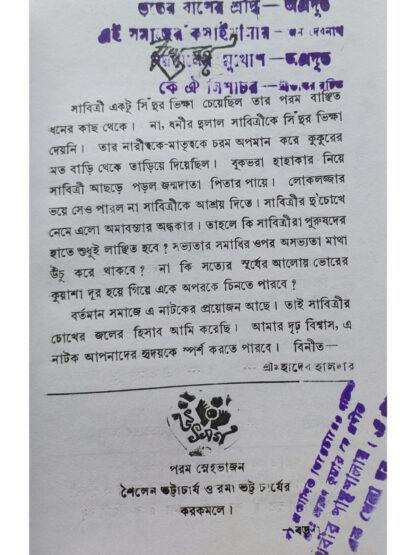 ভূতের বাপের শ্রাদ্ধ— অগ্রদূত
এই সমাজের কসাইখানার—
মুখোশ— অগ্রদূত
কে ঐ
সাবিত্রী একটু সিঁদুর ভিক্ষা চেয়েছিল তার পরম বাঞ্ছিত
ধনের কাছ থেকে। না, ধনীর দুলাল সাবিত্রীকে সিঁদুর ভিক্ষা
দেয়নি। তার নারীত্বকে-মাতৃত্বকে চরম অপমান করে কুকুরের
মত বাড়ি থেকে তাড়িয়ে দিয়েছিল। বুকভরা হাহাকার নিয়ে
সাবিত্রী আছড়ে পড়ল জন্মদাতা পিতার পায়ে। লোকলজ্জার
ভয়ে সেও পারল না সাবিত্রীকে আশ্রয় দিতে। সাবিত্রীর দু'চোখে
নেমে এলো অমাবস্যার অন্ধকার। তাহলে কি সাবিত্রীরা পুরুষদের
হাতে শুধুই লাঞ্ছিত হবে? সভ্যতার সমাধির ওপর অসভ্যতা মাথা
উঁচু করে থাকবে? না কি সত্যের সূর্যের আলোয় ভোরের
কুয়াশা দূর হয়ে গিয়ে একে অপরকে চিনতে পারবে?
বর্তমান সমাজে এ নাটকের প্রয়োজন আছে। তাই সাবিত্রীর
চোখের জলের হিসাব আমি করেছি। আমার দৃঢ় বিশ্বাস, এ
নাটক আপনাদের হৃদয়কে স্পর্শ করতে পারবে। বিনীত—
শ্রীমহাদেব হালদার
উৎসর্গ
পরম স্নেহভাজন
শৈলেন ভট্টাচার্য ও রমা ভট্টাচার্যের
করকমলে।